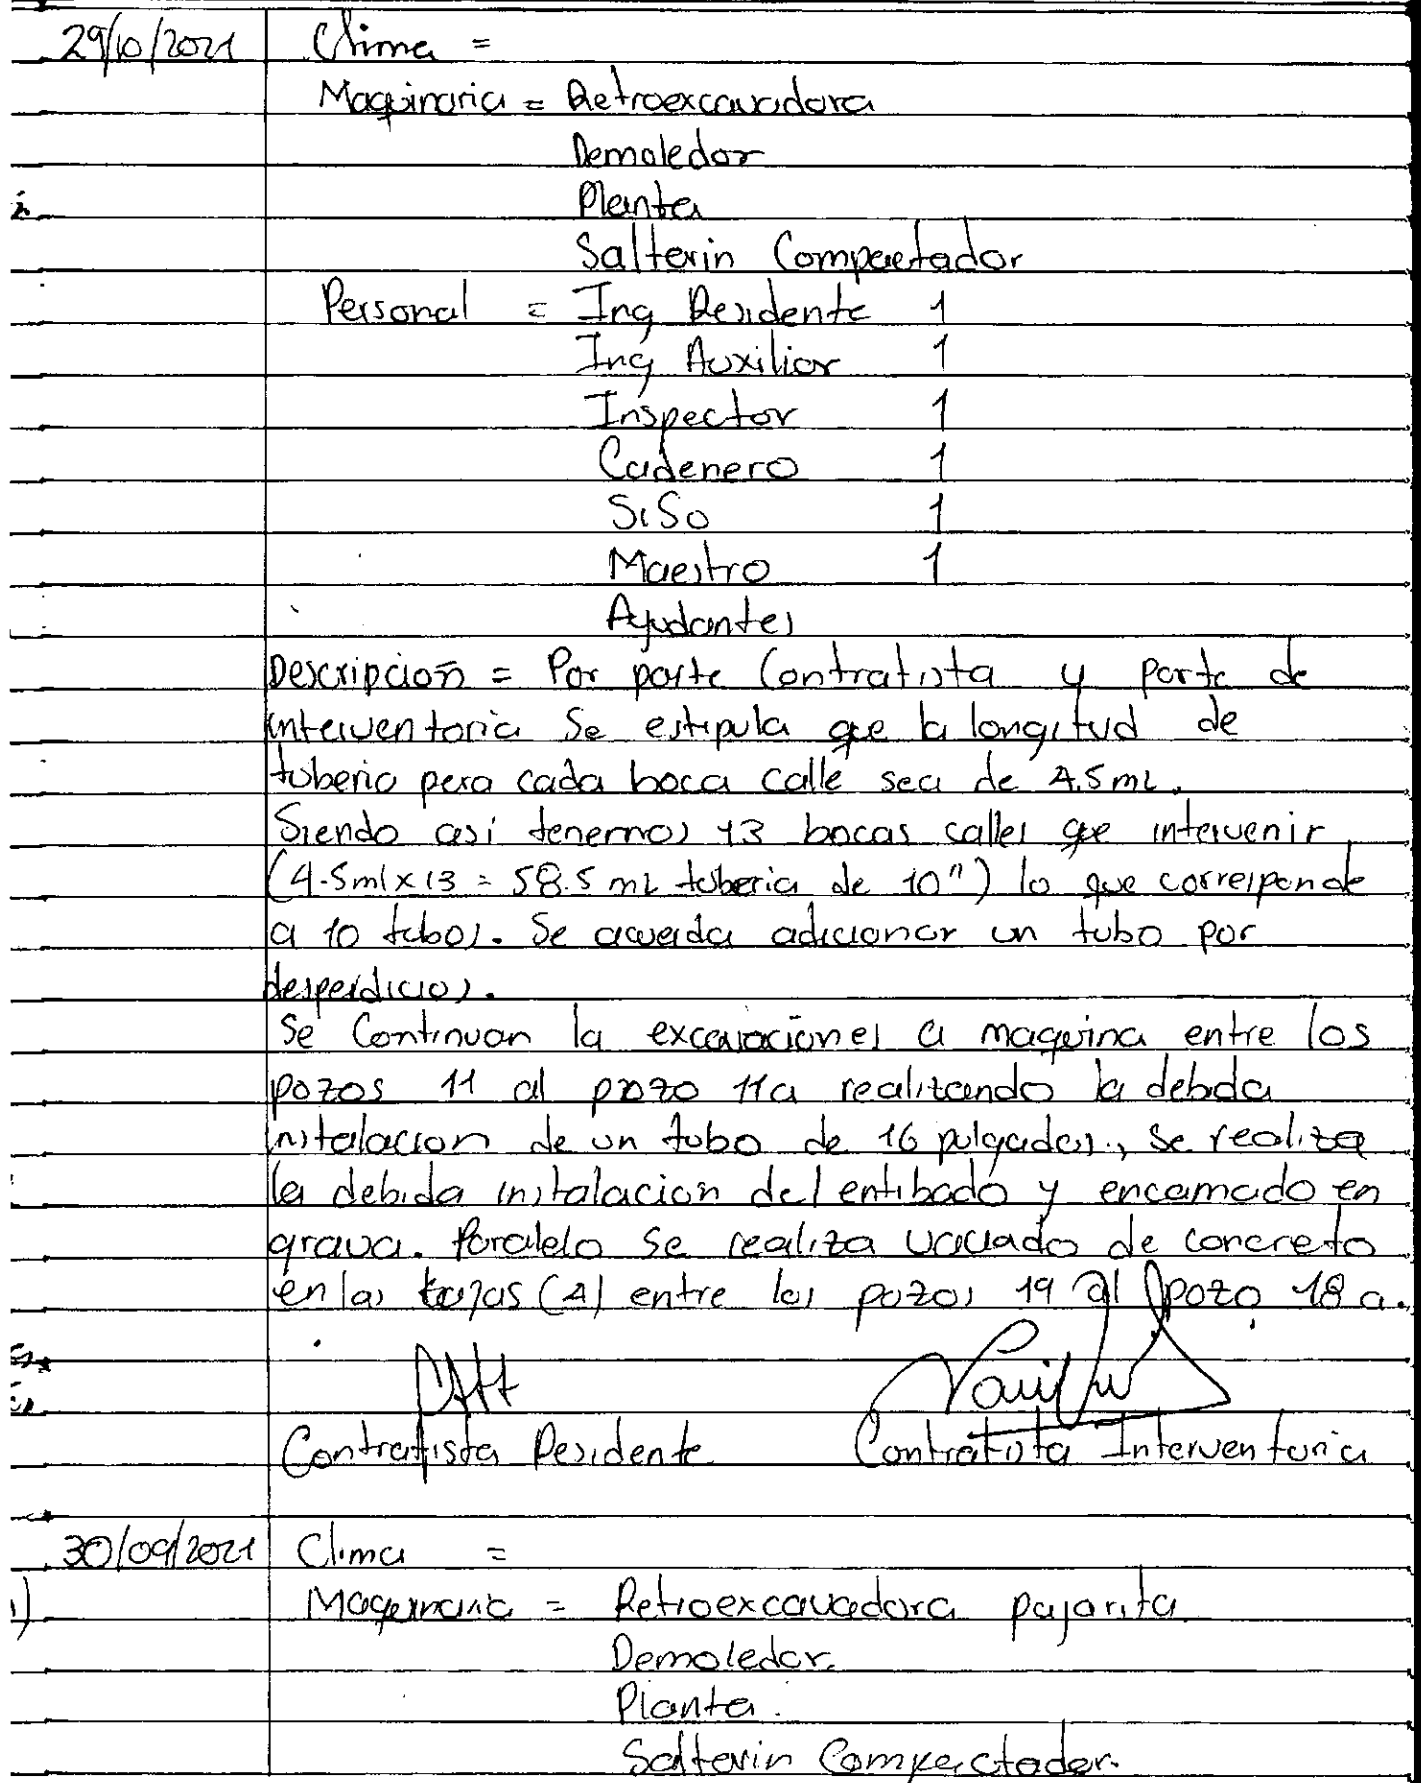 29/10/2021 Clima =
Maquinaria = Retroexcavadora
Demoledor
Planta
Saltarin Compactador
Personal = Ing Residente 1
Ing Auxilior 1
Inspector 1
Cadenero 1
SiSo 1
Maestro 1
Ayudantes
Descripcion = Por parte Contratista y parte de
interventoria Se estipula que la longitud de
tuberia para cada boca calle sea de 4.5 mL.
Siendo asi tenemos 13 bocas calles que intervenir
(4.5ml x 13 = 58.5 mL tuberia de 10") lo que corresponde
a 10 tubos. Se acuerda adicionar un tubo por
desperdicios.
Se Continuan la excavaciones a maquina entre los
pozos 11 al pozo 11a realizando la debida
instalacion de un tubo de 16 pulgadas., se realiza
la debida instalacion del entibado y encamado en
grava. Paralelo se realiza vaciado de concreto
en las (4) entre los pozos 19 al pozo 18 a.
Contratista Residente Contratista Interventoria
30/09/2021 Clima =
Maquinaria = Retroexcavadora pajarita
Demoledor.
Planta.
Saltarin Compactador.